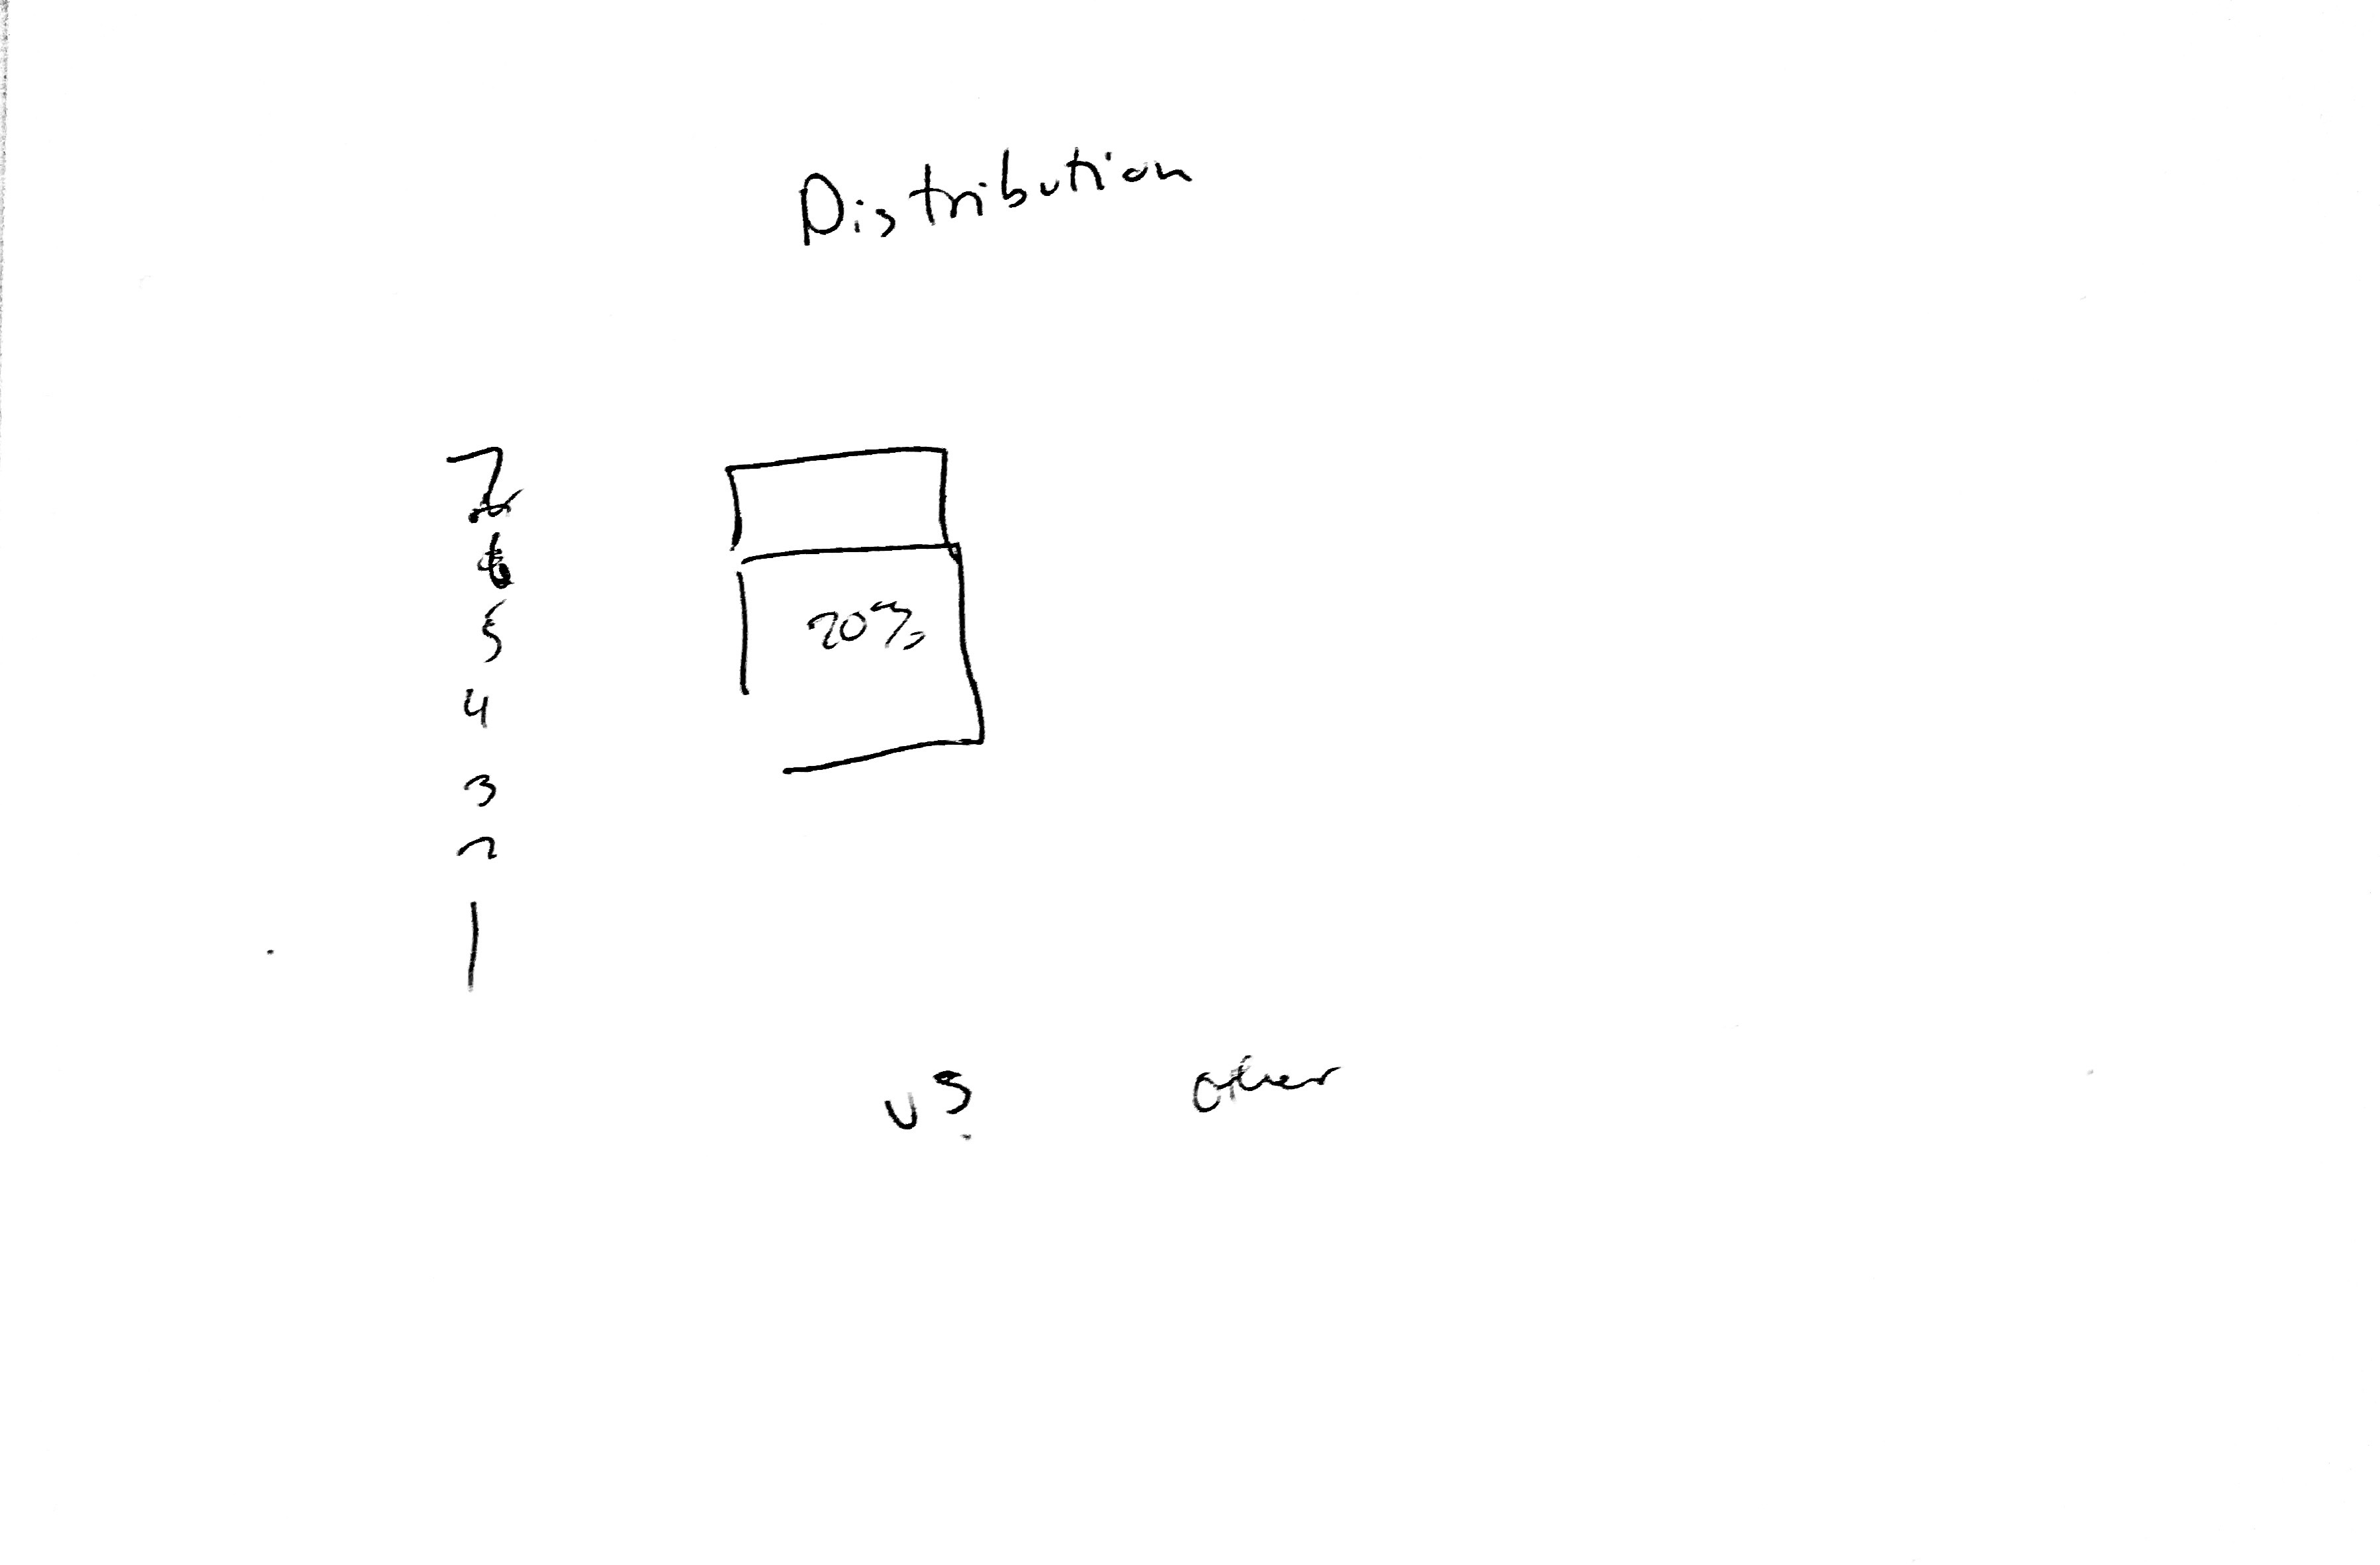 Distribution
7
6
5
20%
4
3
2
1
US Other